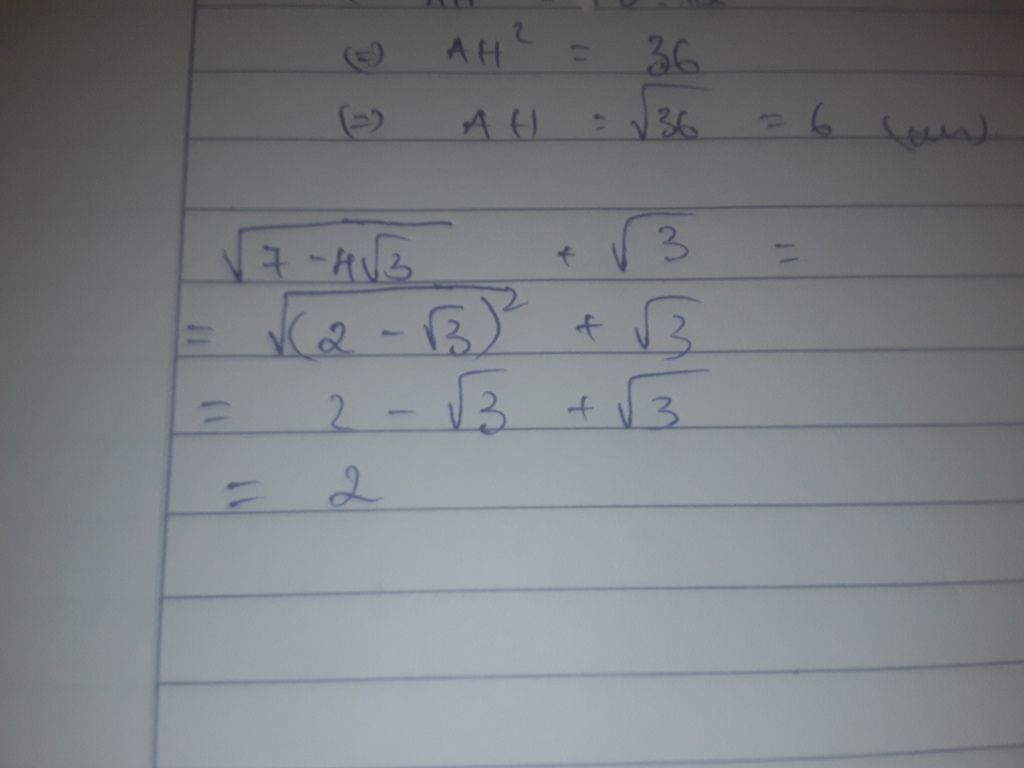 (=) AH² = 36
(=) AH = √36 = 6 (cm).
√(7 - 4√3) + √3 =
= √((2 - √3)²) + √3
= 2 - √3 + √3
= 2